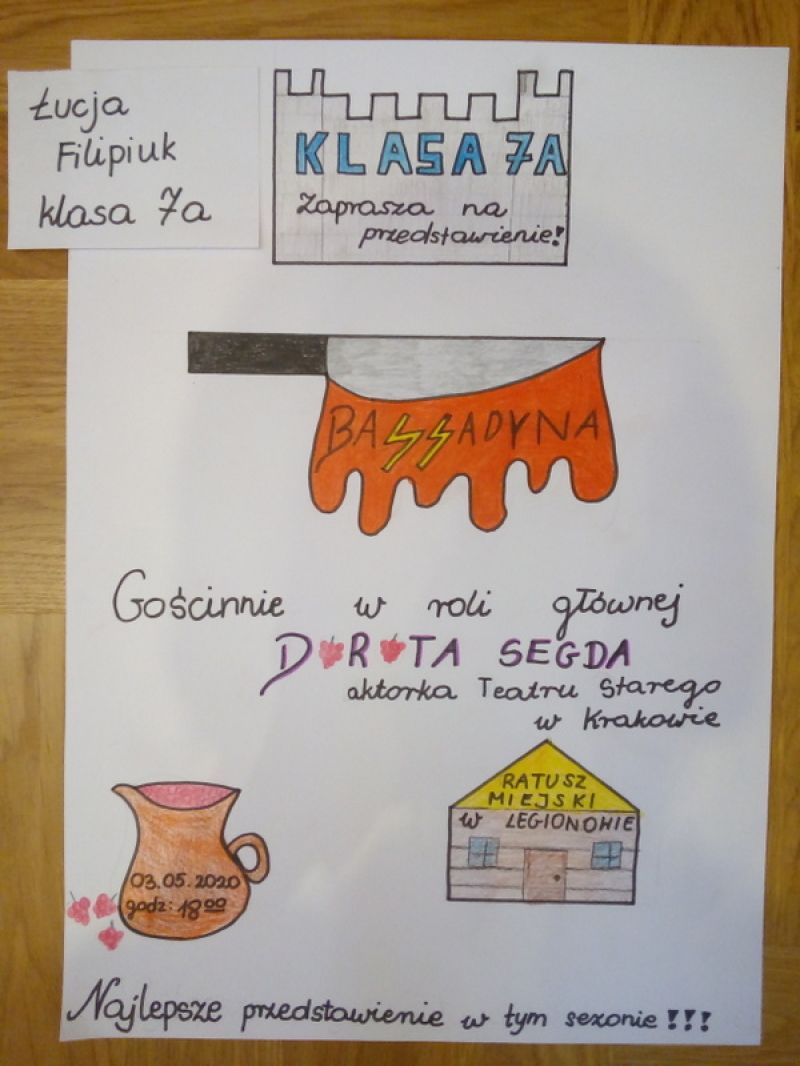 Łucja
Filipiuk
klasa 7a
KLASA 7A
Zaprasza na
przedstawienie!
BASSADYNA
Gościnnie w roli głównej
DOROTA SEGDA
aktorka Teatru Starego
w Krakowie
RATUSZ
MIEJSKI
w LEGIONOWIE
03.05.2020
godz: 18⁰⁰
Najlepsze przedstawienie w tym sezonie!!!